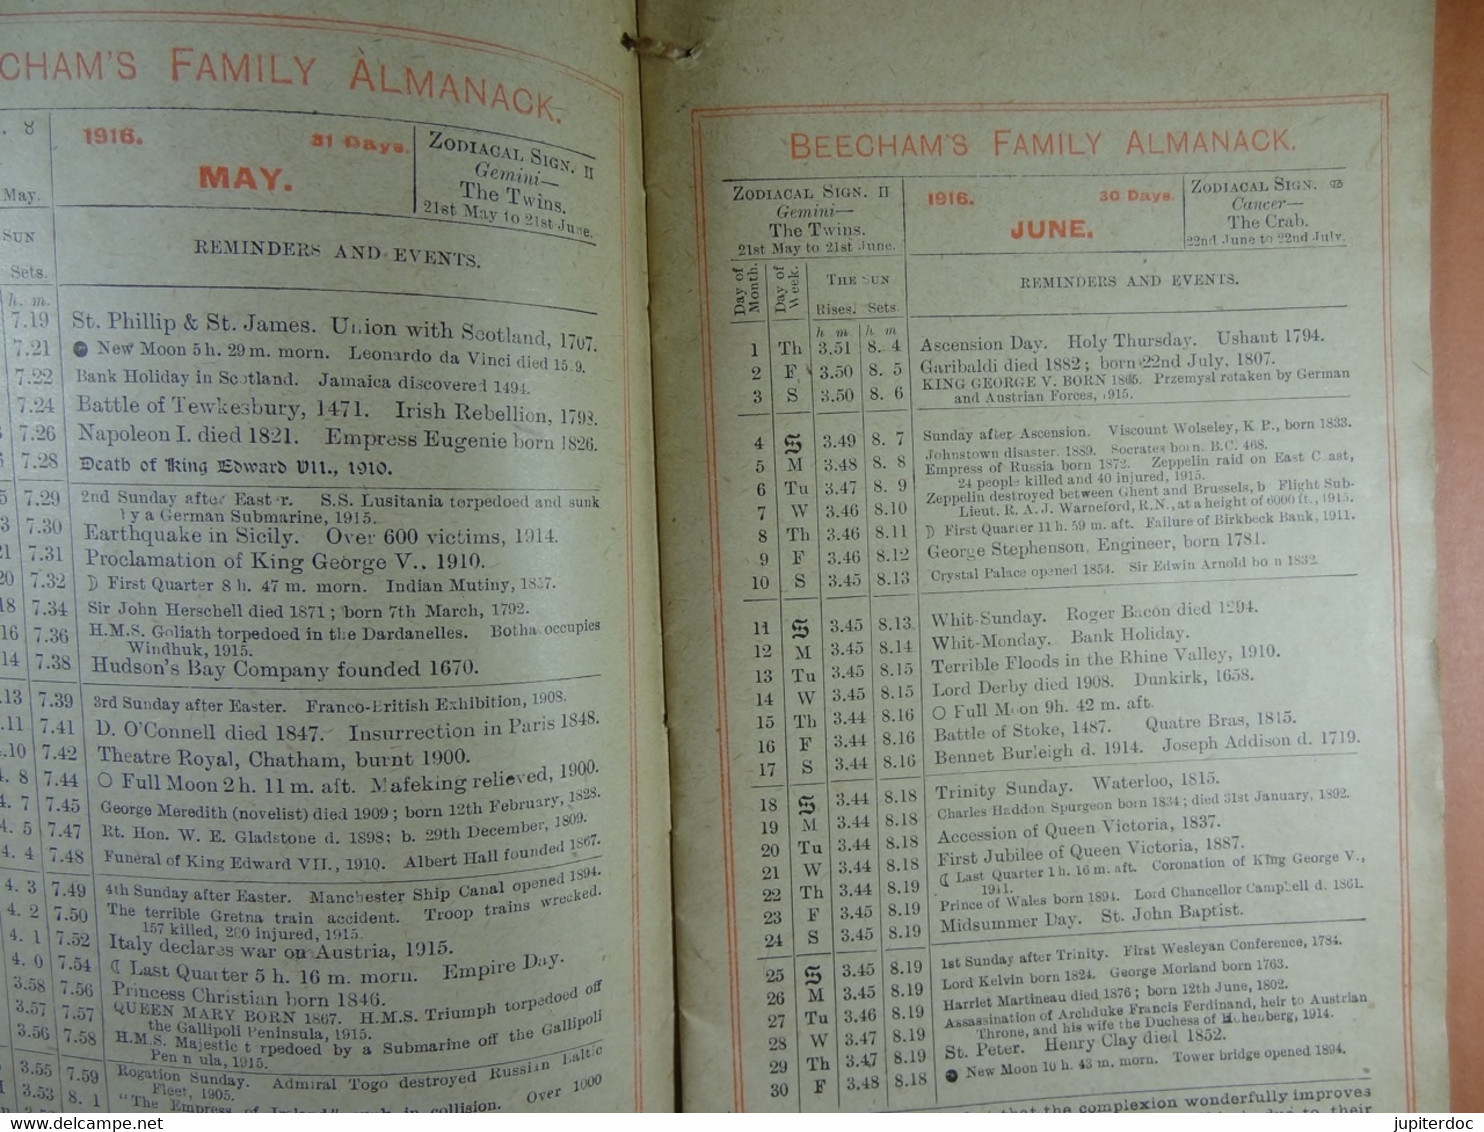 CHAM'S FAMILY ALMANACK.
. ♉
1916. 31 Days.
MAY.
ZODIACAL SIGN. II
Gemini—
The Twins.
21st May to 21st June.
May.
SUN
Sets.
REMINDERS AND EVENTS.
h. m.
7.19 St. Phillip & St. James. Union with Scotland, 1707.
7.21 New Moon 5 h. 29 m. morn. Leonardo da Vinci died
7.22 Bank Holiday in Scotland. Jamaica discovered 1494.
7.24 Battle of Tewkesbury, 1471. Irish Rebellion, 1798.
7.26 Napoleon I. died 1821. Empress Eugenie born 1826.
7.28 Death of King Edward VII., 1910.
7.29 2nd Sunday after Easter. S.S. Lusitania torpedoed and sunk
by a German Submarine, 1915.
7.30 Earthquake in Sicily. Over 600 victims, 1914.
7.31 Proclamation of King George V., 1910.
7.32 ☽ First Quarter 8 h. 47 m. morn. Indian Mutiny, 1857.
7.34 Sir John Herschell died 1871; born 7th March, 1792.
7.36 H.M.S. Goliath torpedoed in the Dardanelles. Botha occupies
Windhuk, 1915.
7.38 Hudson's Bay Company founded 1670.
.13 7.39 3rd Sunday after Easter. Franco-British Exhibition, 1908.
.11 7.41 D. O'Connell died 1847. Insurrection in Paris 1848.
.10 7.42 Theatre Royal, Chatham, burnt 1900.
. 8 7.44 O Full Moon 2 h. 11 m. aft. Mafeking relieved, 1900.
4. 7 7.45 George Meredith (novelist) died 1909; born 12th February, 1828.
4. 5 7.47 Rt. Hon. W. E. Gladstone d. 1898; b. 29th December, 1809.
4. 4 7.48 Funeral of King Edward VII., 1910. Albert Hall founded 1867.
4. 3 7.49 4th Sunday after Easter. Manchester Ship Canal opened 1894.
4. 2 7.50 The terrible Gretna train accident. Troop trains wrecked.
157 killed, 200 injured, 1915.
4. 1 7.52 Italy declares war on Austria, 1915.
4. 0 7.54 ☾ Last Quarter 5 h. 16 m. morn. Empire Day.
3.58 7.56 Princess Christian born 1846.
3.57 7.57 QUEEN MARY BORN 1867. H.M.S. Triumph torpedoed off
the Gallipoli Peninsula, 1915.
3.56 7.58 H.M.S. Majestic torpedoed by a Submarine off the Gallipoli
Peninsula, 1915.
3.55 7.59 Rogation Sunday. Admiral Togo destroyed Russian Baltic
Fleet, 1905.
3.53 8. 1 "The Empress of Ireland" sunk in collision. Over 1000
BEECHAM'S FAMILY ALMANACK.
ZODIACAL SIGN. II
Gemini—
The Twins.
21st May to 21st June.
1916. 30 Days.
JUNE.
ZODIACAL SIGN. ♋
Cancer—
The Crab.
22nd June to 22nd July.
Day of Month. Day of Week. THE SUN
Rises. Sets.
REMINDERS AND EVENTS.
h m h m
1 Th 3.51 8. 4 Ascension Day. Holy Thursday. Ushant 1794.
2 F 3.50 8. 5 Garibaldi died 1882; born 22nd July, 1807.
3 S 3.50 8. 6 KING GEORGE V. BORN 1865. Przemysl retaken by German
and Austrian Forces, 1915.
4 S 3.49 8. 7 Sunday after Ascension. Viscount Wolseley, K P., born 1833.
5 M 3.48 8. 8 Johnstown disaster, 1889. Socrates born. B.C. 468.
6 Tu 3.47 8. 9 Empress of Russia born 1872. Zeppelin raid on East Coast,
24 people killed and 40 injured, 1915.
7 W 3.46 8.10 Zeppelin destroyed between Ghent and Brussels, b Flight Sub-
Lieut. R. A. J. Warneford, R.N., at a height of 6000 ft., 1915.
8 Th 3.46 8.11 ☽ First Quarter 11 h. 59 m. aft. Failure of Birkbeck Bank, 1911.
9 F 3.46 8.12 George Stephenson, Engineer, born 1781.
10 S 3.45 8.13 Crystal Palace opened 1854. Sir Edwin Arnold born 1832.
11 S 3.45 8.13 Whit-Sunday. Roger Bacon died 1294.
12 M 3.45 8.14 Whit-Monday. Bank Holiday.
13 Tu 3.45 8.15 Terrible Floods in the Rhine Valley, 1910.
14 W 3.45 8.15 Lord Derby died 1908. Dunkirk, 1658.
15 Th 3.44 8.16 O Full Moon 9h. 42 m. aft.
16 F 3.44 8.16 Battle of Stoke, 1487. Quatre Bras, 1815.
17 S 3.44 8.16 Bennet Burleigh d. 1914. Joseph Addison d. 1719.
18 S 3.44 8.18 Trinity Sunday. Waterloo, 1815.
19 M 3.44 8.18 Charles Haddon Spurgeon born 1834; died 31st January, 1892.
20 Tu 3.44 8.18 Accession of Queen Victoria, 1837.
21 W 3.44 8.18 First Jubilee of Queen Victoria, 1887.
22 Th 3.44 8.19 ☾ Last Quarter 1 h. 16 m. aft. Coronation of King George V.,
1911.
23 F 3.45 8.19 Prince of Wales born 1894. Lord Chancellor Campbell d. 1861.
24 S 3.45 8.19 Midsummer Day. St. John Baptist.
25 S 3.45 8.19 1st Sunday after Trinity. First Wesleyan Conference, 1784.
26 M 3.45 8.19 Lord Kelvin born 1824. George Morland born 1763.
27 Tu 3.46 8.19 Harriet Martineau died 1876; born 12th June, 1802.
28 W 3.47 8.19 Assassination of Archduke Francis Ferdinand, heir to Austrian
Throne, and his wife the Duchess of Hohenberg, 1914.
29 Th 3.47 8.19 St. Peter. Henry Clay died 1852.
30 F 3.48 8.18 New Moon 10 h. 43 m. morn. Tower bridge opened 1894.
that the complexion wonderfully improves
to their
www.delcampe.net
jupiterdoc